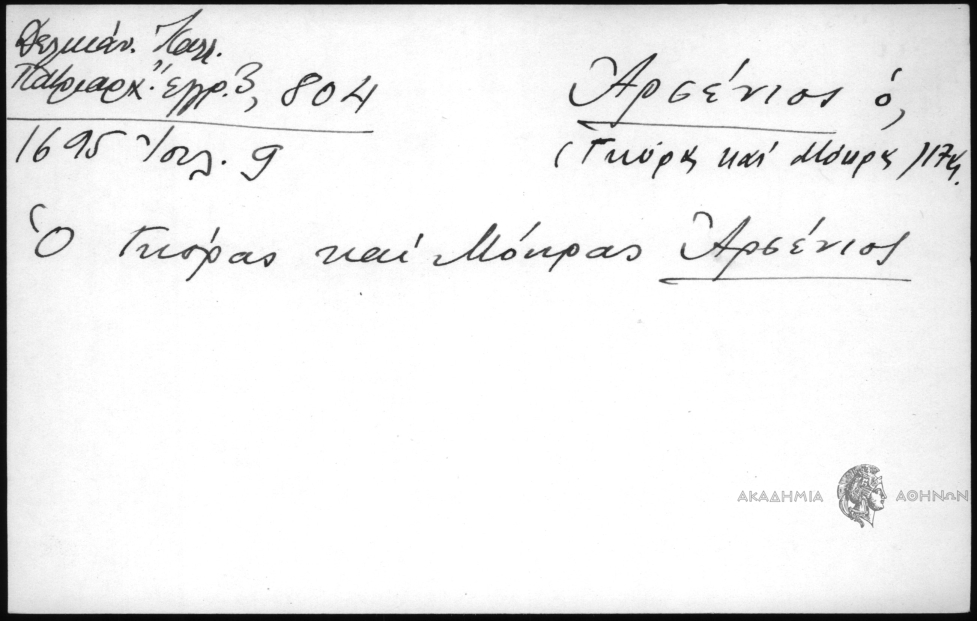 Δελικάν. Καλλ.
Πατριαρχ. ἔγγρ. 3, 804
1695 Ἰουλ. 9
Ἀρσένιος ὁ,
(Γκόρας καί Μόκρας) 17ς.
Ὁ Γκόρας καί Μόκρας Ἀρσένιος
ΑΚΑΔΗΜΙΑ ΑΘΗΝΩΝ